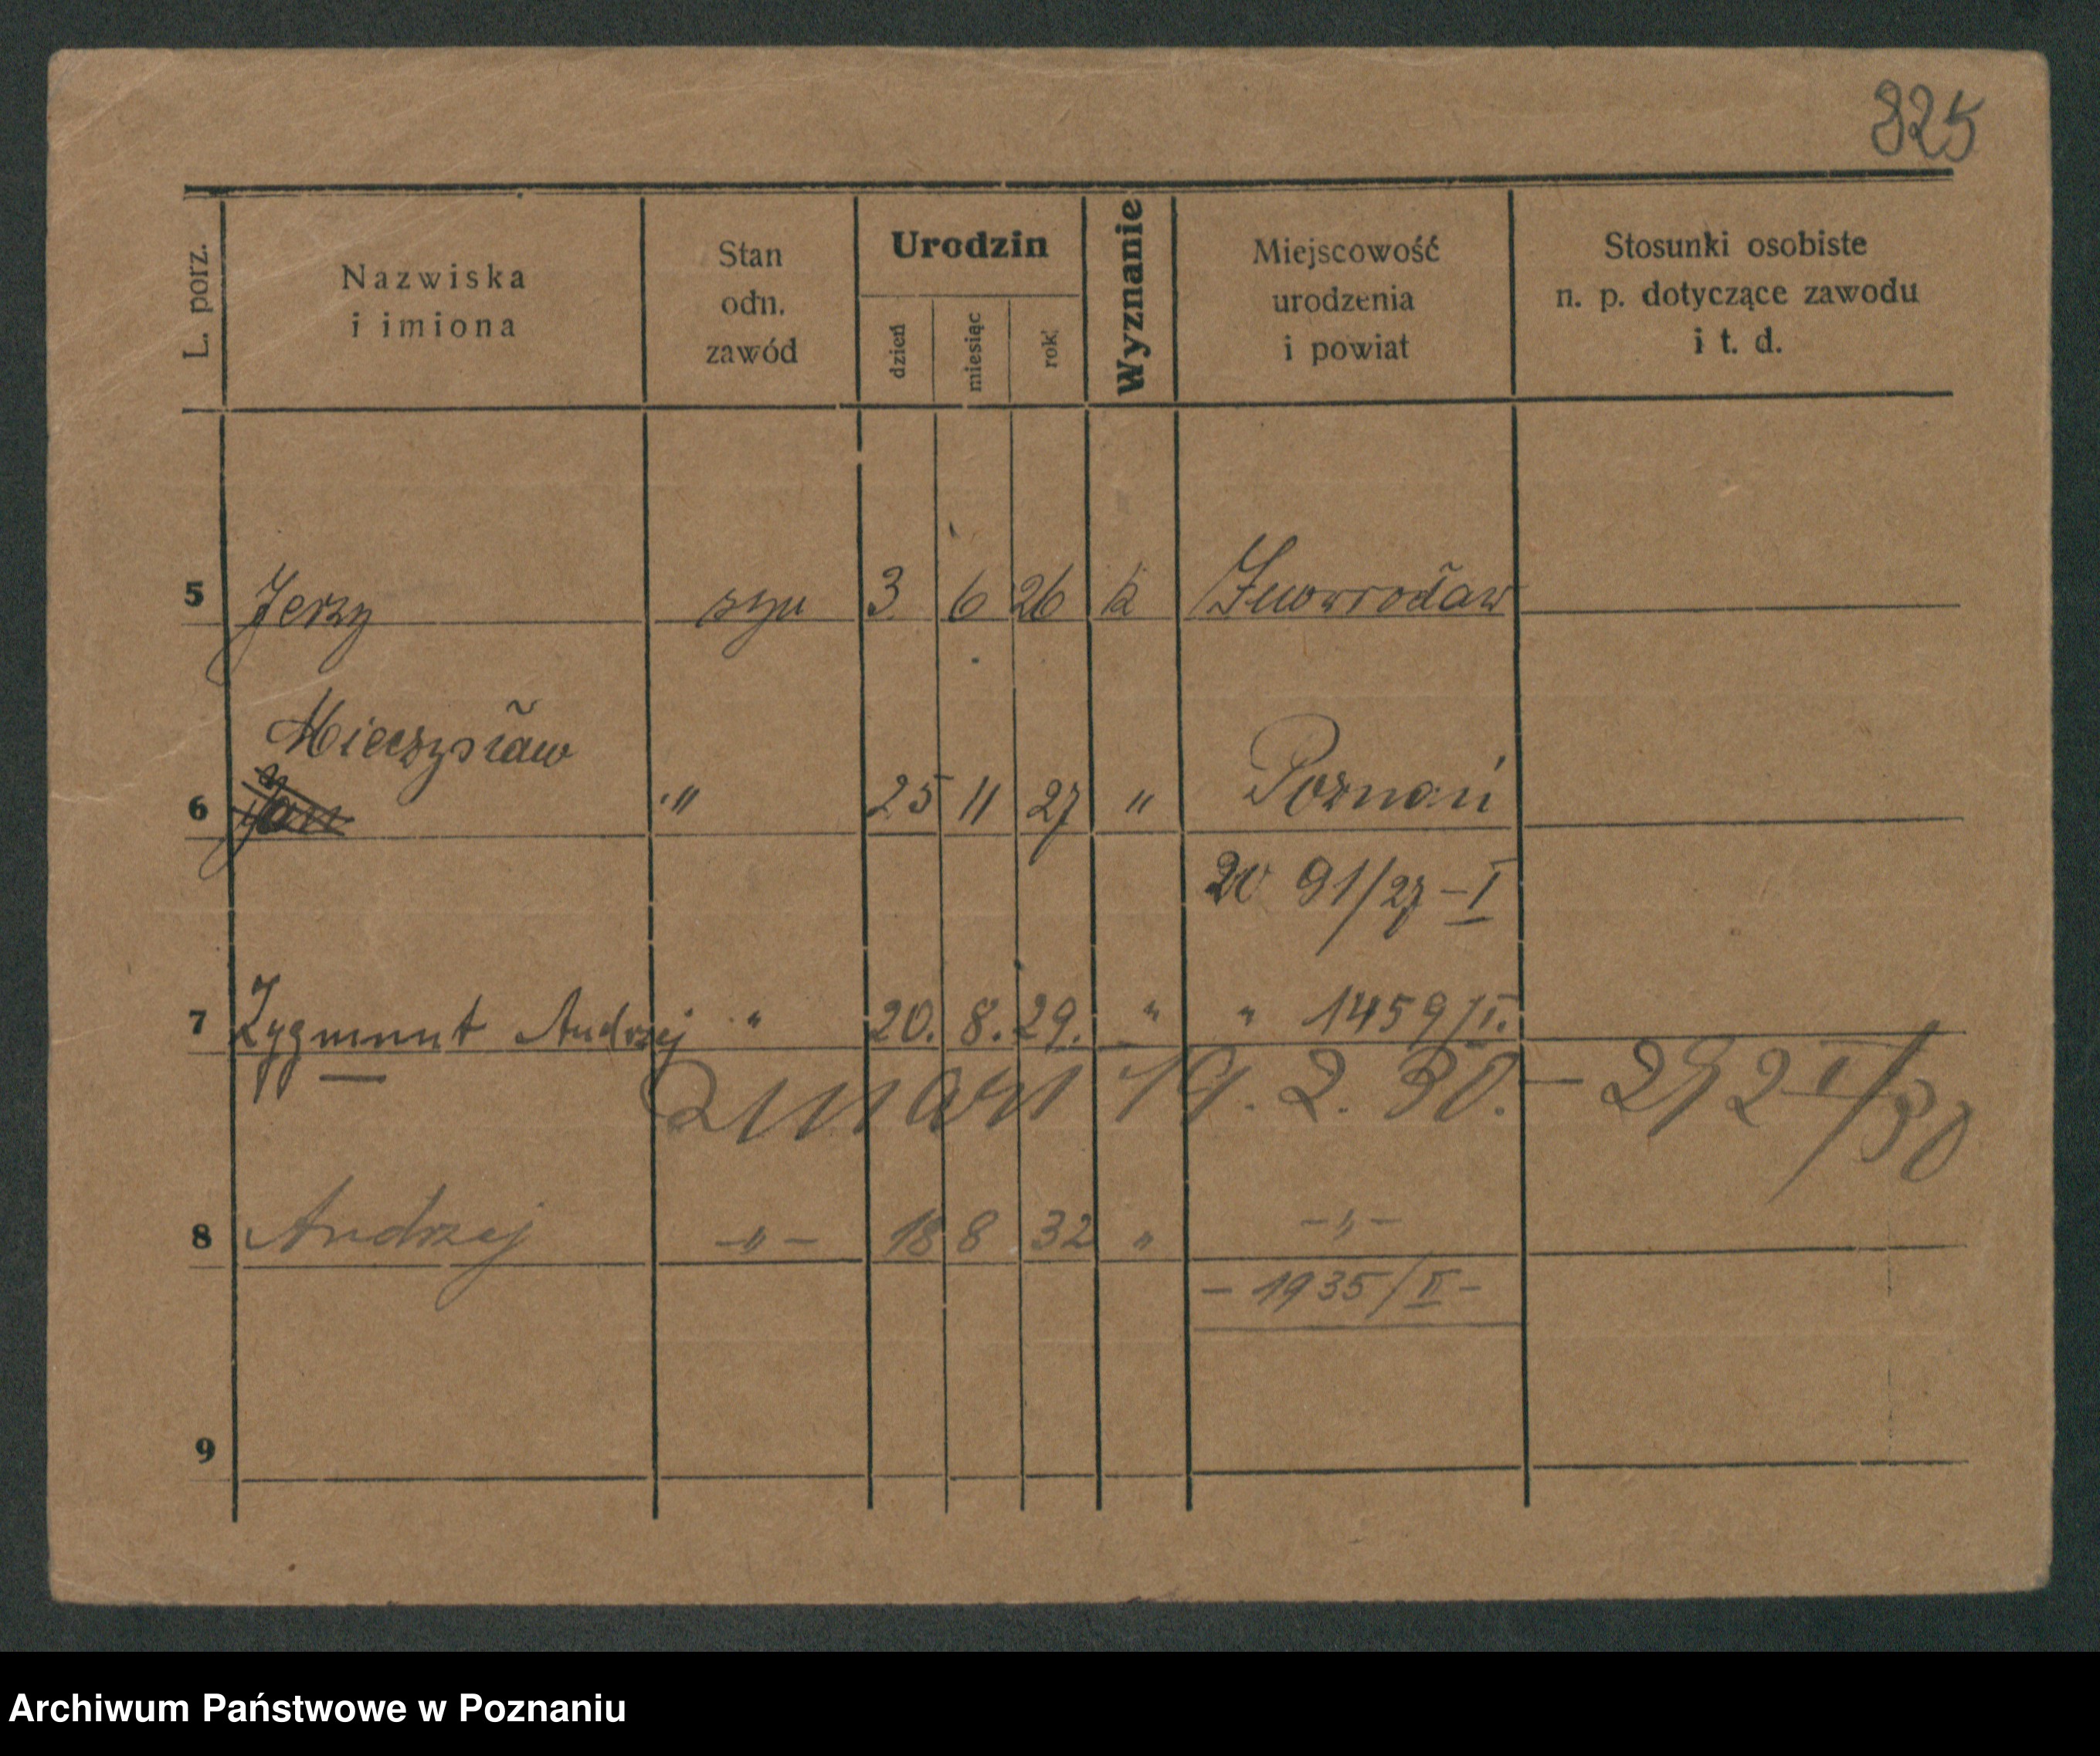 825
L. porz.
Nazwiska
i imiona
Stan
odn.
zawód
Urodzin
dzień
miesiąc
rok
Wyznanie
Miejscowość
urodzenia
i powiat
Stosunki osobiste
n. p. dotyczące zawodu
i t. d.
5 Jerzy syn 3 6 26 k Inowrocław
Mieczysław
6 Jan " 25 11 27 " Poznań
91/27 - I
7 Zygmunt Andrzej " 20. 8. 29. " " 1459/I.
zmarł 19. 2. 30. - 292 I/30
8 Andrzej -"- 18 8 32 " -"-
- 1935/II -
9
Archiwum Państwowe w Poznaniu